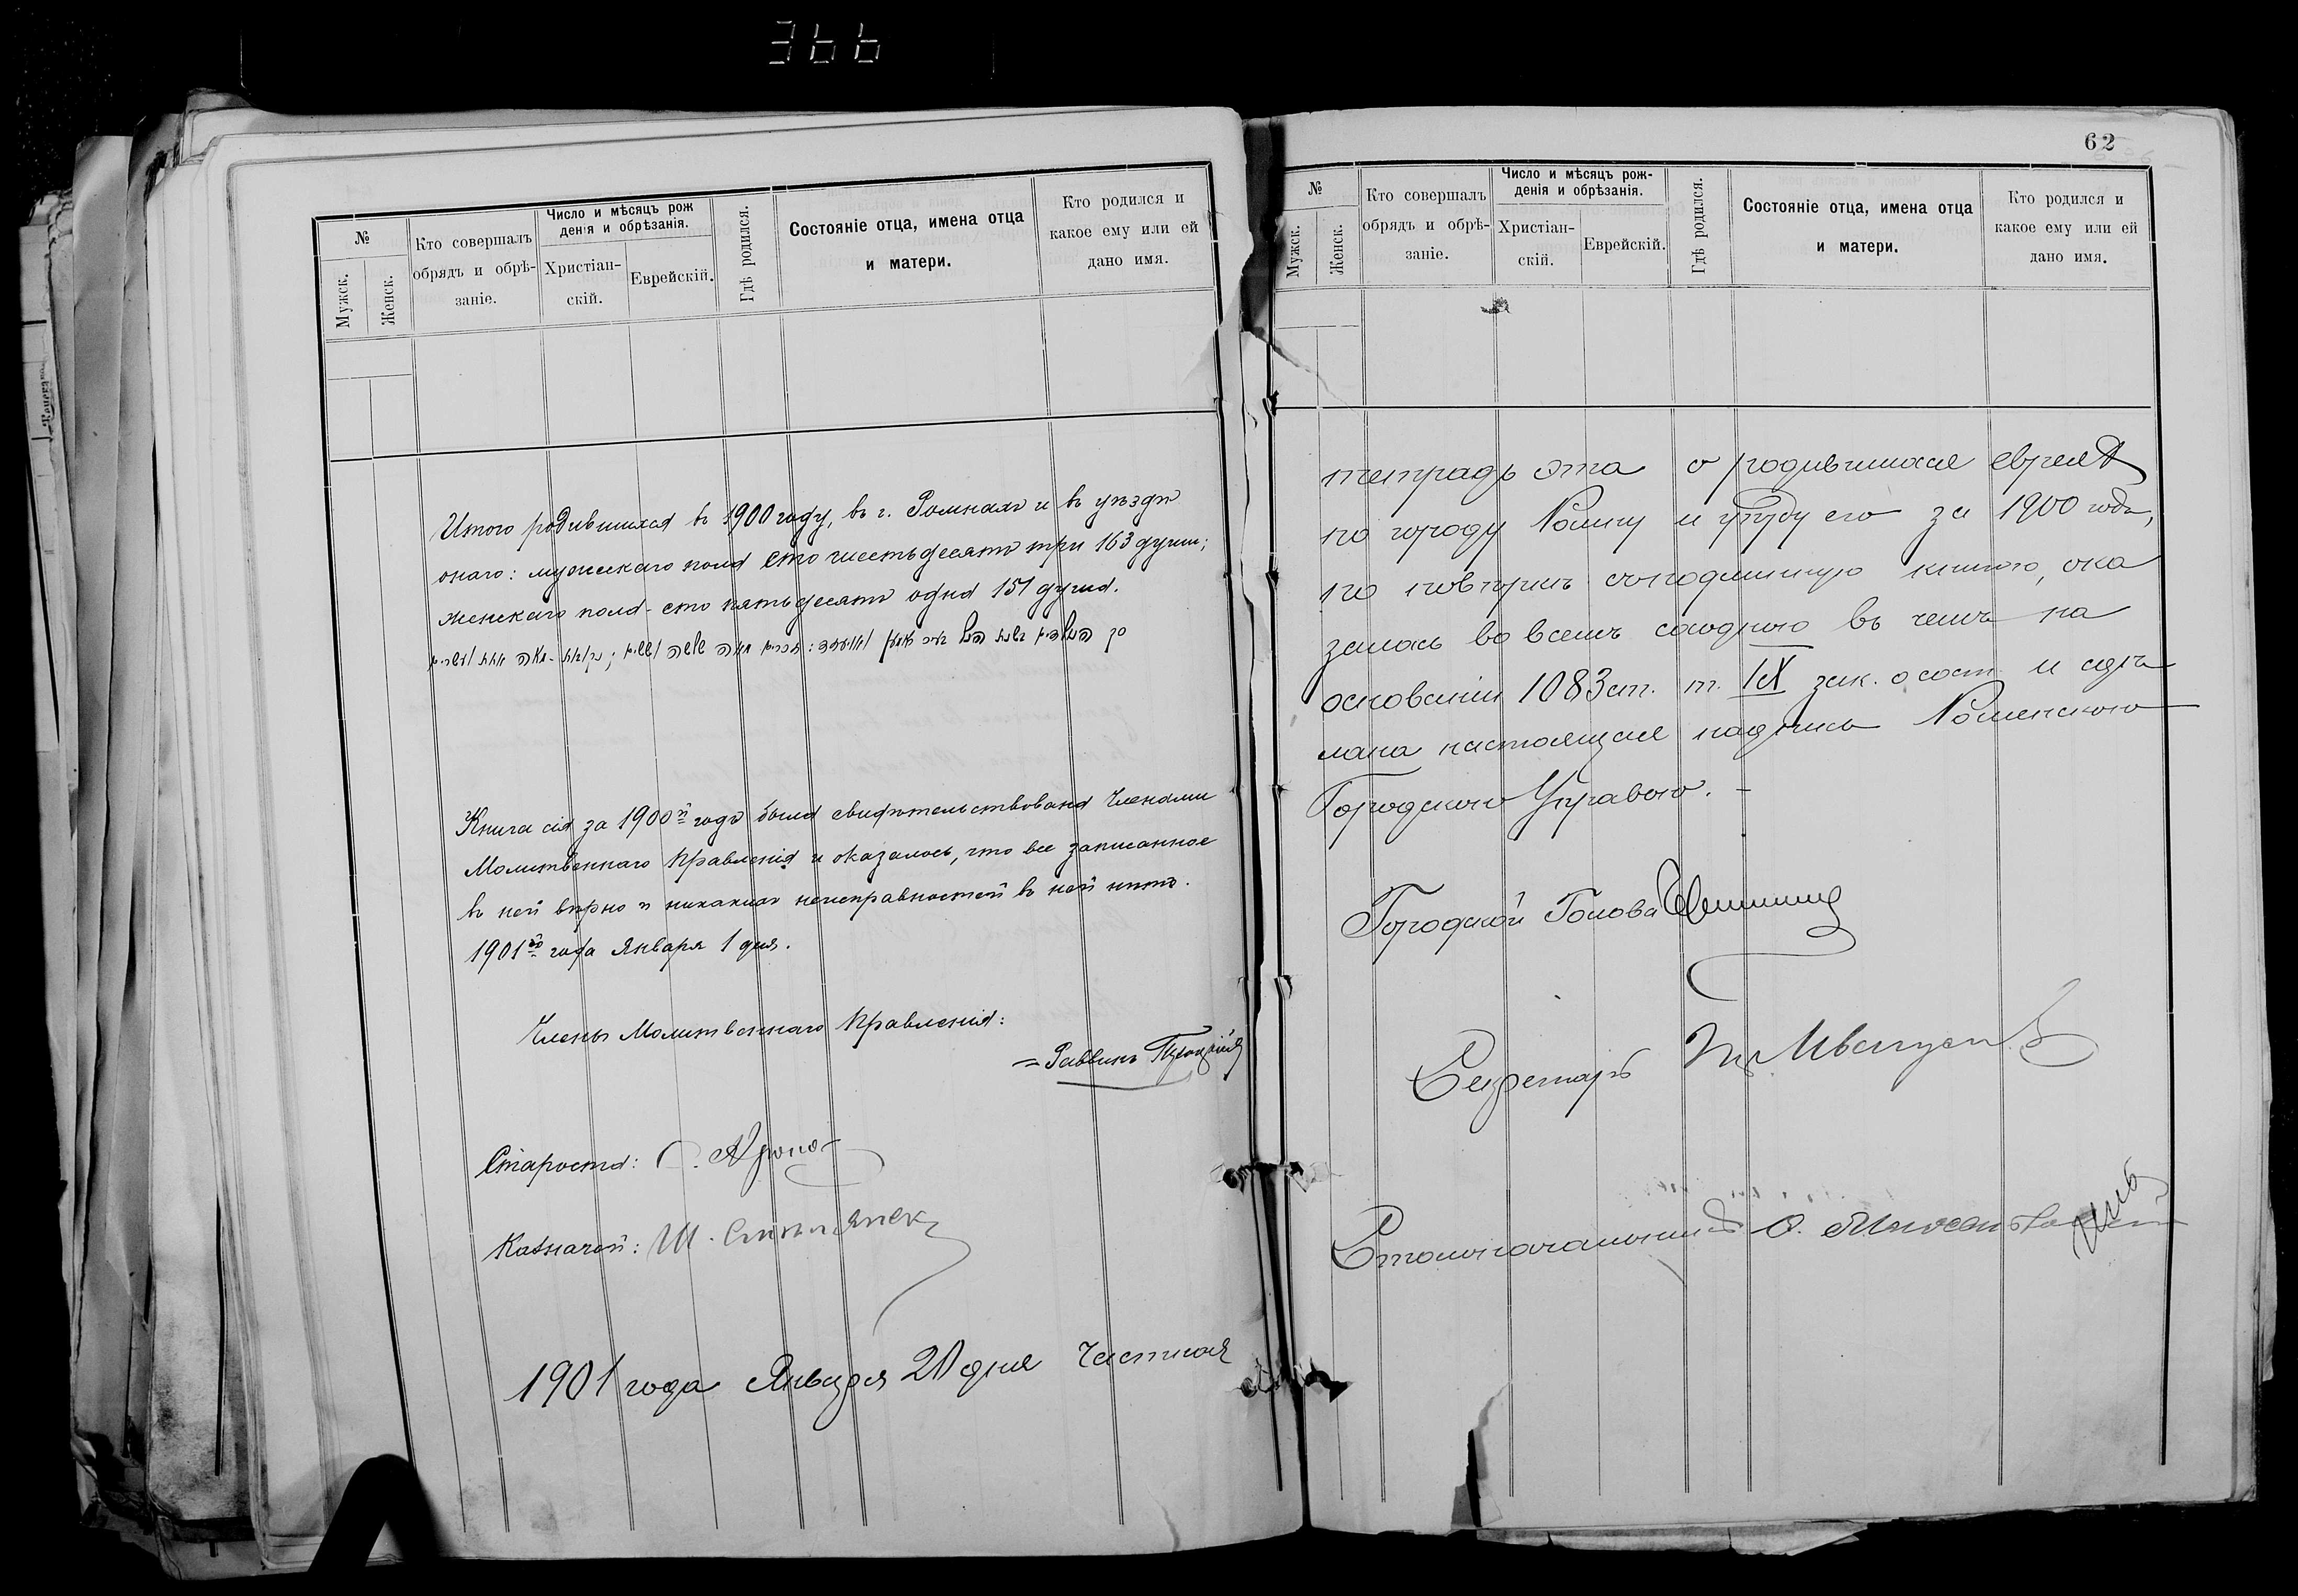 366
№
Мужск.
Женск.
Кто совершалъ
обрядъ и обрѣ-
заніе.
Число и мѣсяцъ рож
денія и обрѣзанія.
Христіан-
скій.
Еврейскій.
Гдѣ родился.
Состояніе отца, имена отца
и матери.
Кто родился и
какое ему или ей
дано имя.
Итого родившихся въ 1900 году, въ г. Ромнахъ и въ уѣздѣ
онаго: мужескаго пола сто шестьдесятъ три 163 души;
женскаго пола - сто пятьдесятъ одна 151 душа.
Книга сія за 1900й годъ была свидѣтельствована Членами
Молитвеннаго Правленія и оказалось, что все записанное
въ ней вѣрно и никакихъ неисправностей въ ней нѣтъ.
1901го года Января 1 дня.
Члены Молитвеннаго Правленія:
= Раввинъ
Староста:
Казначей: Ш.
1901 года Января 20 дня Частная
62
№
Мужск.
Женск.
Кто совершалъ
обрядъ и обрѣ-
заніе.
Число и мѣсяцъ рож-
денія и обрѣзанія.
Христіан-
скій.
Еврейскій.
Гдѣ родился.
Состояніе отца, имена отца
и матери.
Кто родился и
какое ему или ей
дано имя.
тетрадь эта о родившихся евреях
по городу Ромну и уезду его за 1900 годъ,
по повѣркѣ съ подлинную книгою, ока
залась во всемъ сходною въ чемъ на
основаніи 1083 ст. т. IX зак. о сост. и сдѣ
лана настоящая надпись Роменскою
Городскою Управою. -
Городской Голова
Секретарь
Столоначальникъ О.